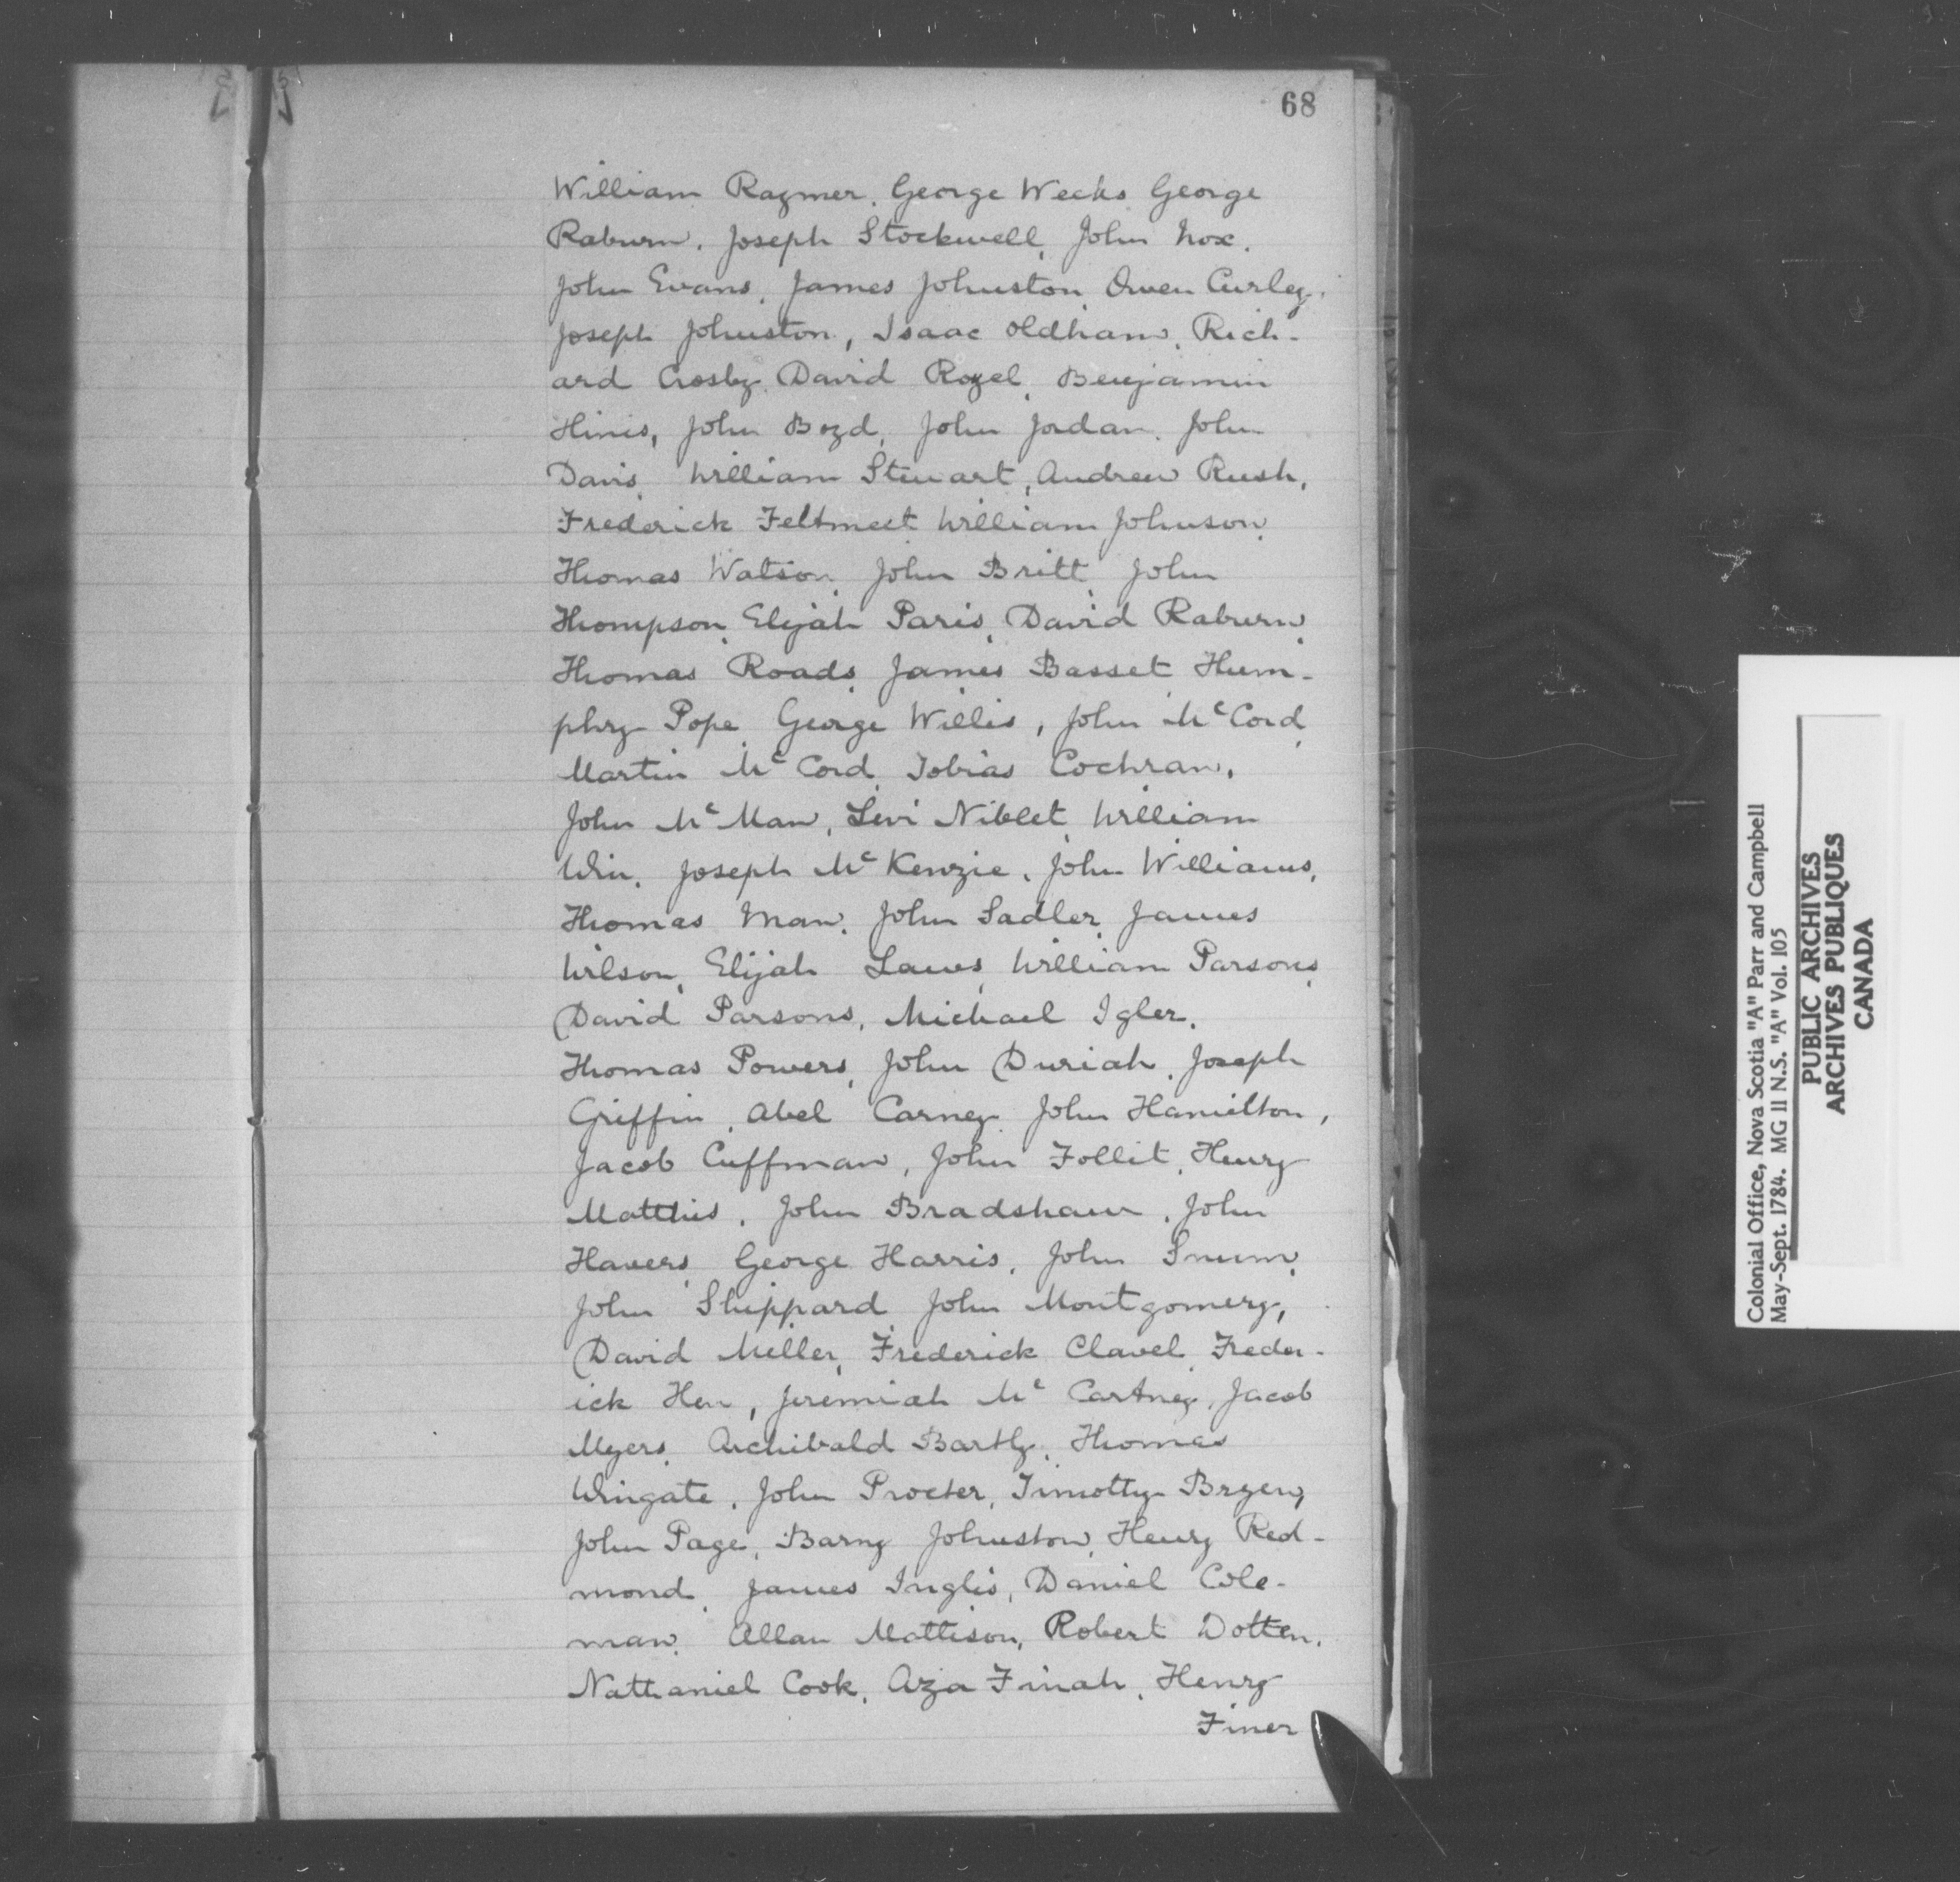 68
William Raymer, George Weeks, George
Raburn, Joseph Stockwell, John Nox,
John Evans, James Johnston, Owen Curley,
Joseph Johnston, Isaac Oldham, Rich-
ard Crosby, David Rozel, Benjamin
Hines, John Boyd, John Jordan, John
Davis, William Stewart, Andrew Rush,
Frederick Feltmeet, William Johnson,
Thomas Watson, John Britt, John
Thompson, Elijah Paris, David Raburn,
Thomas Roads, James Basset, Hum-
phry Pope, George Willis, John McCord,
Martin McCord, Tobias Cochran,
John McMan, Levi Niblet, William
Win, Joseph McKenzie, John Williams,
Thomas Man, John Sadler, James
Wilson, Elijah Laws, William Parsons,
David Parsons, Michael Igler,
Thomas Powers, John Duriah, Joseph
Griffin, Abel Carney, John Hamilton,
Jacob Cuffman, John Follit, Henry
Matthis, John Bradshaw, John
Havers, George Harris, John Snum,
John Sheppard, John Montgomery,
David Miller, Frederick Clavel, Freder-
ick Hen, Jeremiah McCartney, Jacob
Myers, Archibald Bartly, Thomas
Wingate, John Procter, Timothy Bryen,
John Page, Barny Johnston, Henry Red-
mond, James Inglis, Daniel Cole-
man, Allan Mattison, Robert Dotten,
Nathaniel Cook, Aza Finah, Henry
Finer
Colonial Office, Nova Scotia "A" Parr and Campbell
May-Sept. 1784. MG 11 N.S. "A" Vol. 105
PUBLIC ARCHIVES
ARCHIVES PUBLIQUES
CANADA